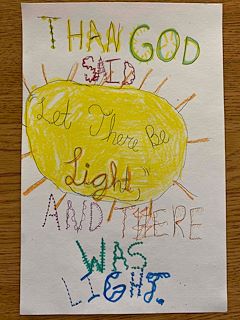 THAN GOD
SAID
"Let There Be
Light,"
AND THERE
WAS
LIGHT.